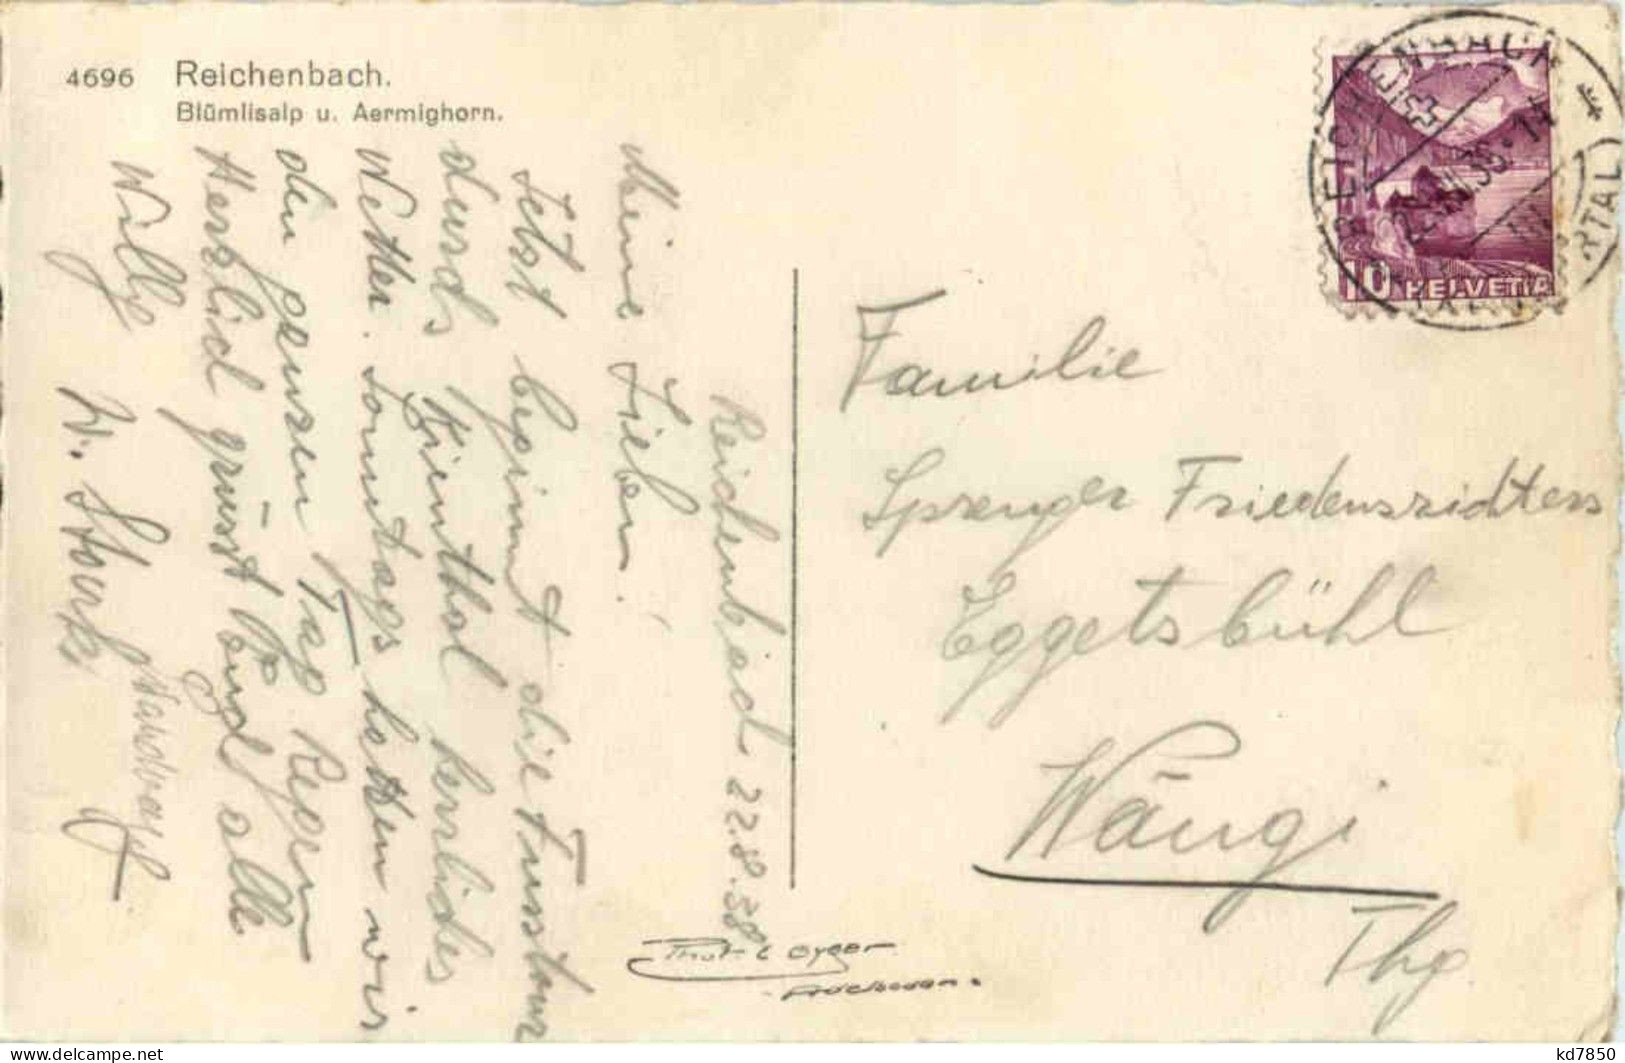 4696 Reichenbach.
Blümlisalp u. Aermighorn.
REICHENBACH
(KANDERTAL)
10 HELVETIA
Reichenbach 22.8.38
Meine Lieben!
Jetzt beginnt die Fusstour
durch Kienthal herrliches
Wetter. Sonntags hatten wir
den ganzen Tag Regen
Herzlich grüsst Euch alle
Willy
W. Stark,
Familie
Sprenger Friedensrichters
Eggetsbühl
Wängi
Thg
Phot. Gyger
Adelboden.
kd7850